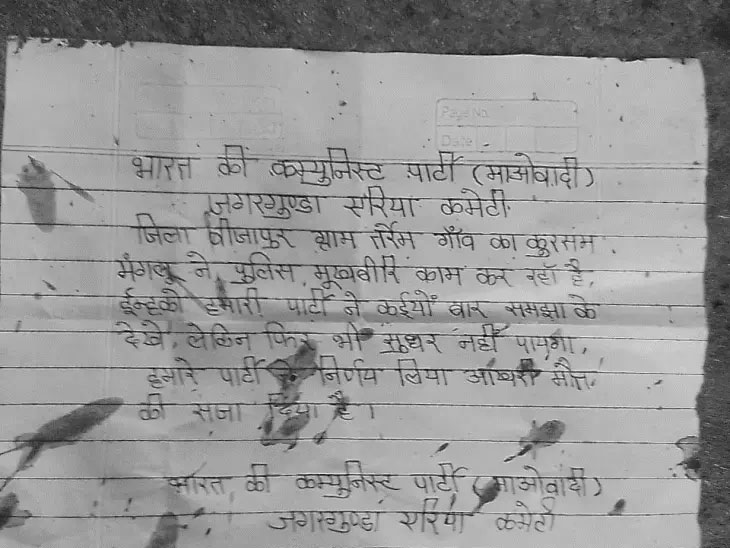 Page No.
Date
भारत की कम्युनिस्ट पार्टी (माओवादी)
जगरगुण्डा एरिया कमेटी
जिला बीजापुर ग्राम तर्रेम गाँव का कुरसम
मंगलू ने, पुलिस मुखबीरि काम कर रहा है,
ईन्हको हमारी पार्टी ने कईयों बार समझा के
देखे, लेकिन फिर भी सुधर नहीं पायगा,
हमारे पार्टी ने निर्णय लिया आखरी मौत
की सजा दिया है।
भारत की कम्युनिस्ट पार्टी (माओवादी)
जगरगुण्डा एरिया कमेटी